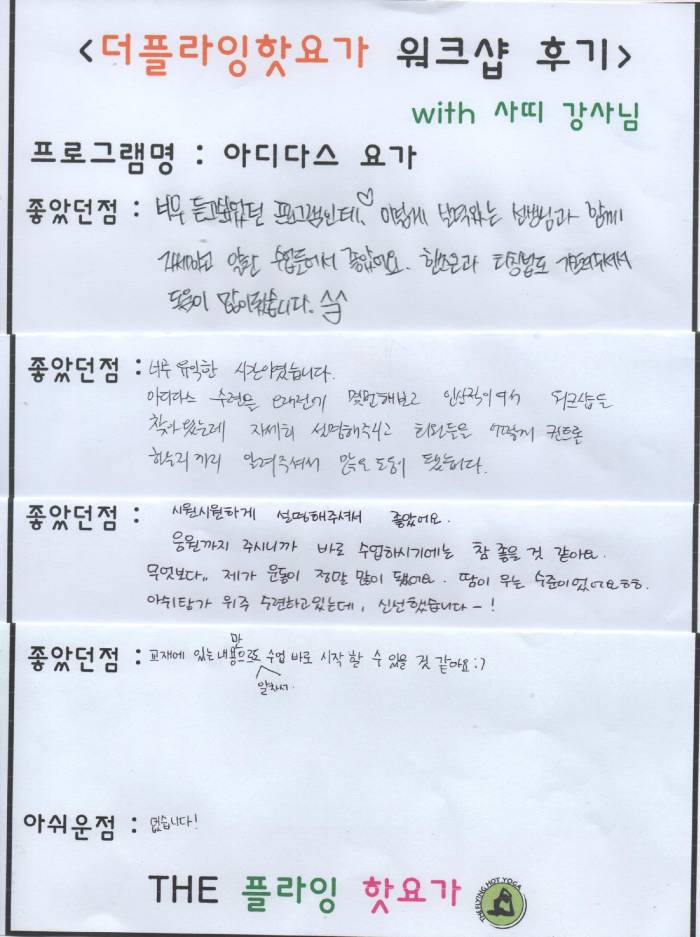 <더플라잉핫요가 워크샵 후기>
with 사띠 강사님
프로그램명 : 아디다스 요가
좋았던점 : 너무 듣고싶었던 프로그램인데♡ 이렇게 선생님과 함께
수업들어서 좋았어요. 핸즈온과 티칭법도
도움이 많이됐습니다. ^^
좋았던점 : 너무 유익한 시간이였습니다.
아디다스 수련은 예전에 몇번해보고 인상적이여서 워크샵을
찾아왔는데 자세히 설명해주시고 회원들을 어떻게 컨트롤
하는지까지 알려주셔서 많은 도움이 됐습니다.
좋았던점 : 시원시원하게 설명해주셔서 좋았어요.
음원까지 주시니까 바로 수업하시기에는 참 좋을 것 같아요.
무엇보다.. 제가 운동이 정말 많이 됐어요. 땀이 우는 수준이었어요ㅎㅎ.
아쉬탕가 위주 수련하고있는데, 신선했습니다-!
좋았던점 : 교재에 있는 내용만으로도 알차서 수업 바로 시작 할 수 있을 것 같아요:)
아쉬운점 : 없습니다!
THE 플라잉 핫요가
THE FLYING HOT YOGA